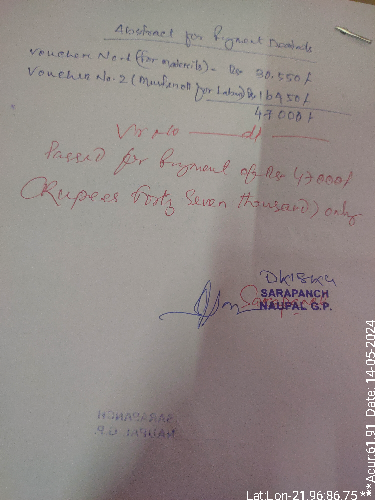 Abstract for Payment Details
Voucher No-1 (For materials) - Rs 30,550/-
Voucher No. 2 (Musteroll for Labour) Rs 16450/-
47000/-
Vr No dt
Passed for Payment of Rs 47000/-
(Rupees Forty Seven thousand) only
SARAPANCH
NAUPAL G.P.
SARAPANCH
NAUPAL G.P.
Lat:Lon-21.96:86.75***Acur:61.91 Date: 14-05-2024